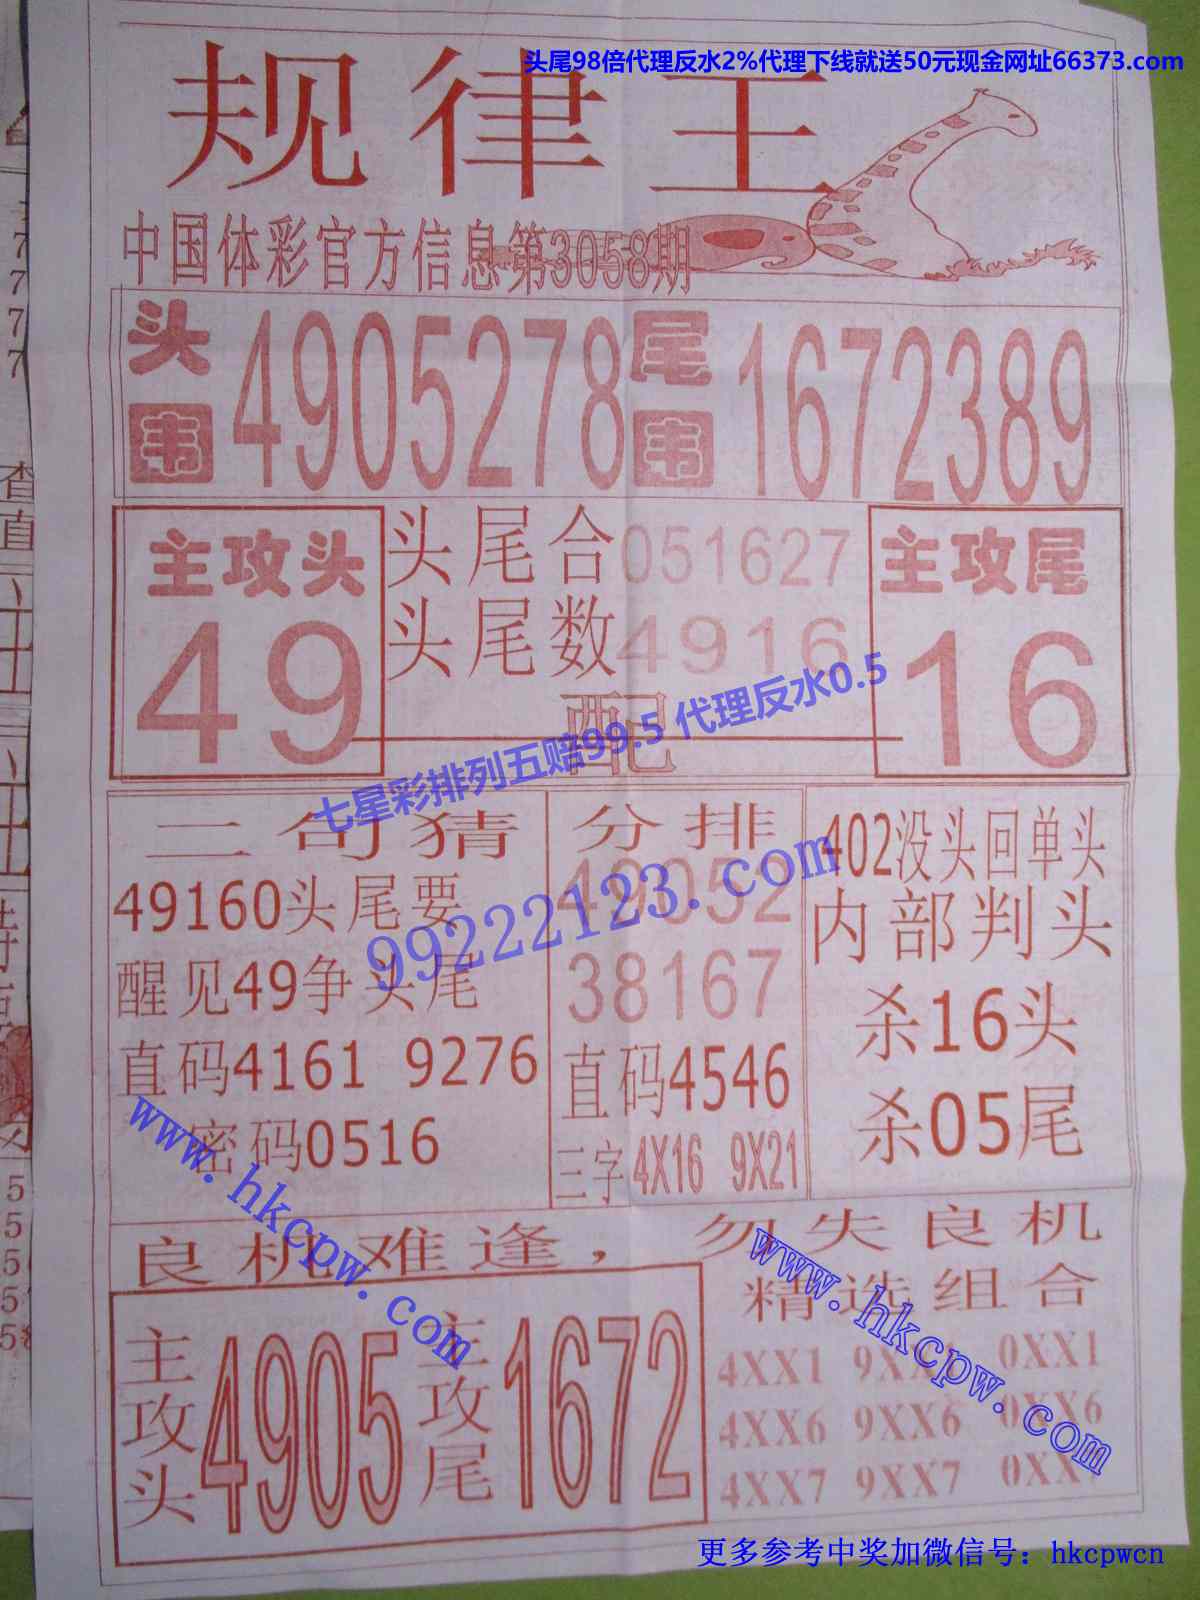 头尾98倍代理反水2%代理下线就送50元现金网址66373.com
规律王
中国体彩官方信息第3058期
头围 4905278 尾围 1672389
主攻头 49
头尾合051627
头尾数4916
配
主攻尾 16
七星彩排列五赔99.5 代理反水0.5
99222123.com
三句猜
49160头尾要
醒见49争头尾
直码4161 9276
密码0516
分排
49052
38167
直码4546
三字4X16 9X21
402没头回单头
内部判头
杀16头
杀05尾
www.hkcpw.com
www.hkcpw.com
良机难逢，勿失良机
主攻头 4905 主攻尾 1672
精选组合
4XX1 0XX1
4XX6 9XX6 0XX6
4XX7 9XX7
更多参考中奖加微信号：hkcpwcn
7
7
7
7
查
直
5
5
5
5